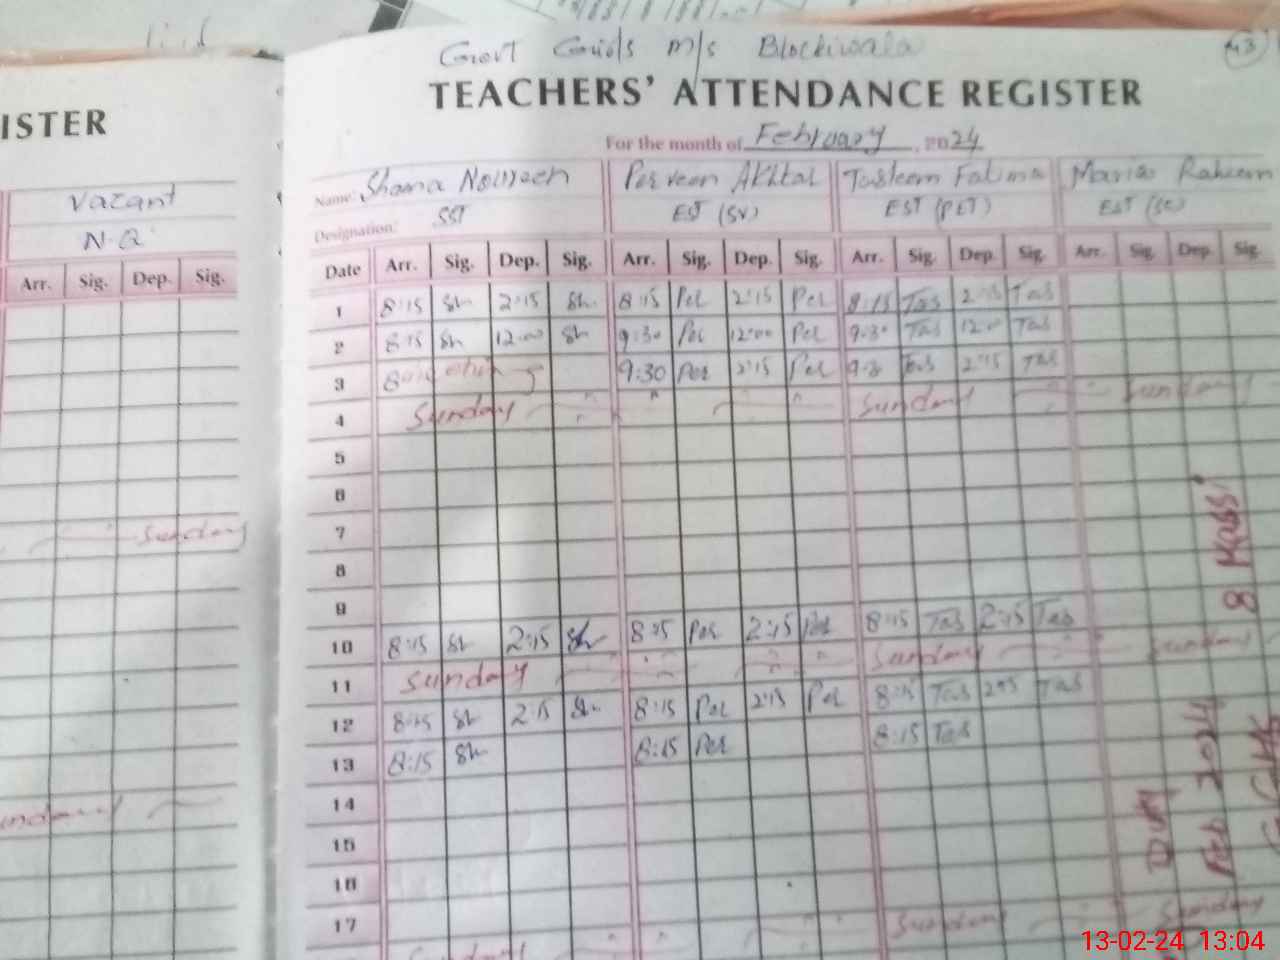 Govt Girls M/S Blockiwala
43
TEACHERS' ATTENDANCE REGISTER
ISTER
For the month of February, 2024
Vacant
Name: Shama Parveen Akhtar Tasleem Fatima Maria Raheem
N-Q
Designation: SST EST (SV) EST (PET) EST
Arr. Sig. Dep. Sig.
Date Arr. Sig. Dep. Sig. Arr. Sig. Dep. Sig. Arr. Sig. Dep. Sig. Arr. Sig. Dep. Sig.
1 8:15 Sh 2:15 Sh 8:15 Per 2:15 Per 8:15 Tas 2:15 Tas
2 8:15 Sh 12:00 Sh 9:30 Per 12:00 Per 9:30 Tas 12:0 Tas
3 9:30 Per 2:15 Per 9:3 Tas 2:15 Tas
4 Sunday Sunday Sunday
5
6
7
Sunday
8
9
10 8:15 Sh 2:15 Sh 8:15 Per 2:15 Per 8:15 Tas 2:15 Tas
11 Sunday Sunday Sunday
12 8:15 Sh 2:15 Sh 8:15 Per 2:15 Per 8:15 Tas 2:15 Tas
13 8:15 Sh 8:15 Per 8:15 Tas
14
15
16
17
Sunday Sunday Sunday
Duty
Feb 2024
13-02-24 13:04